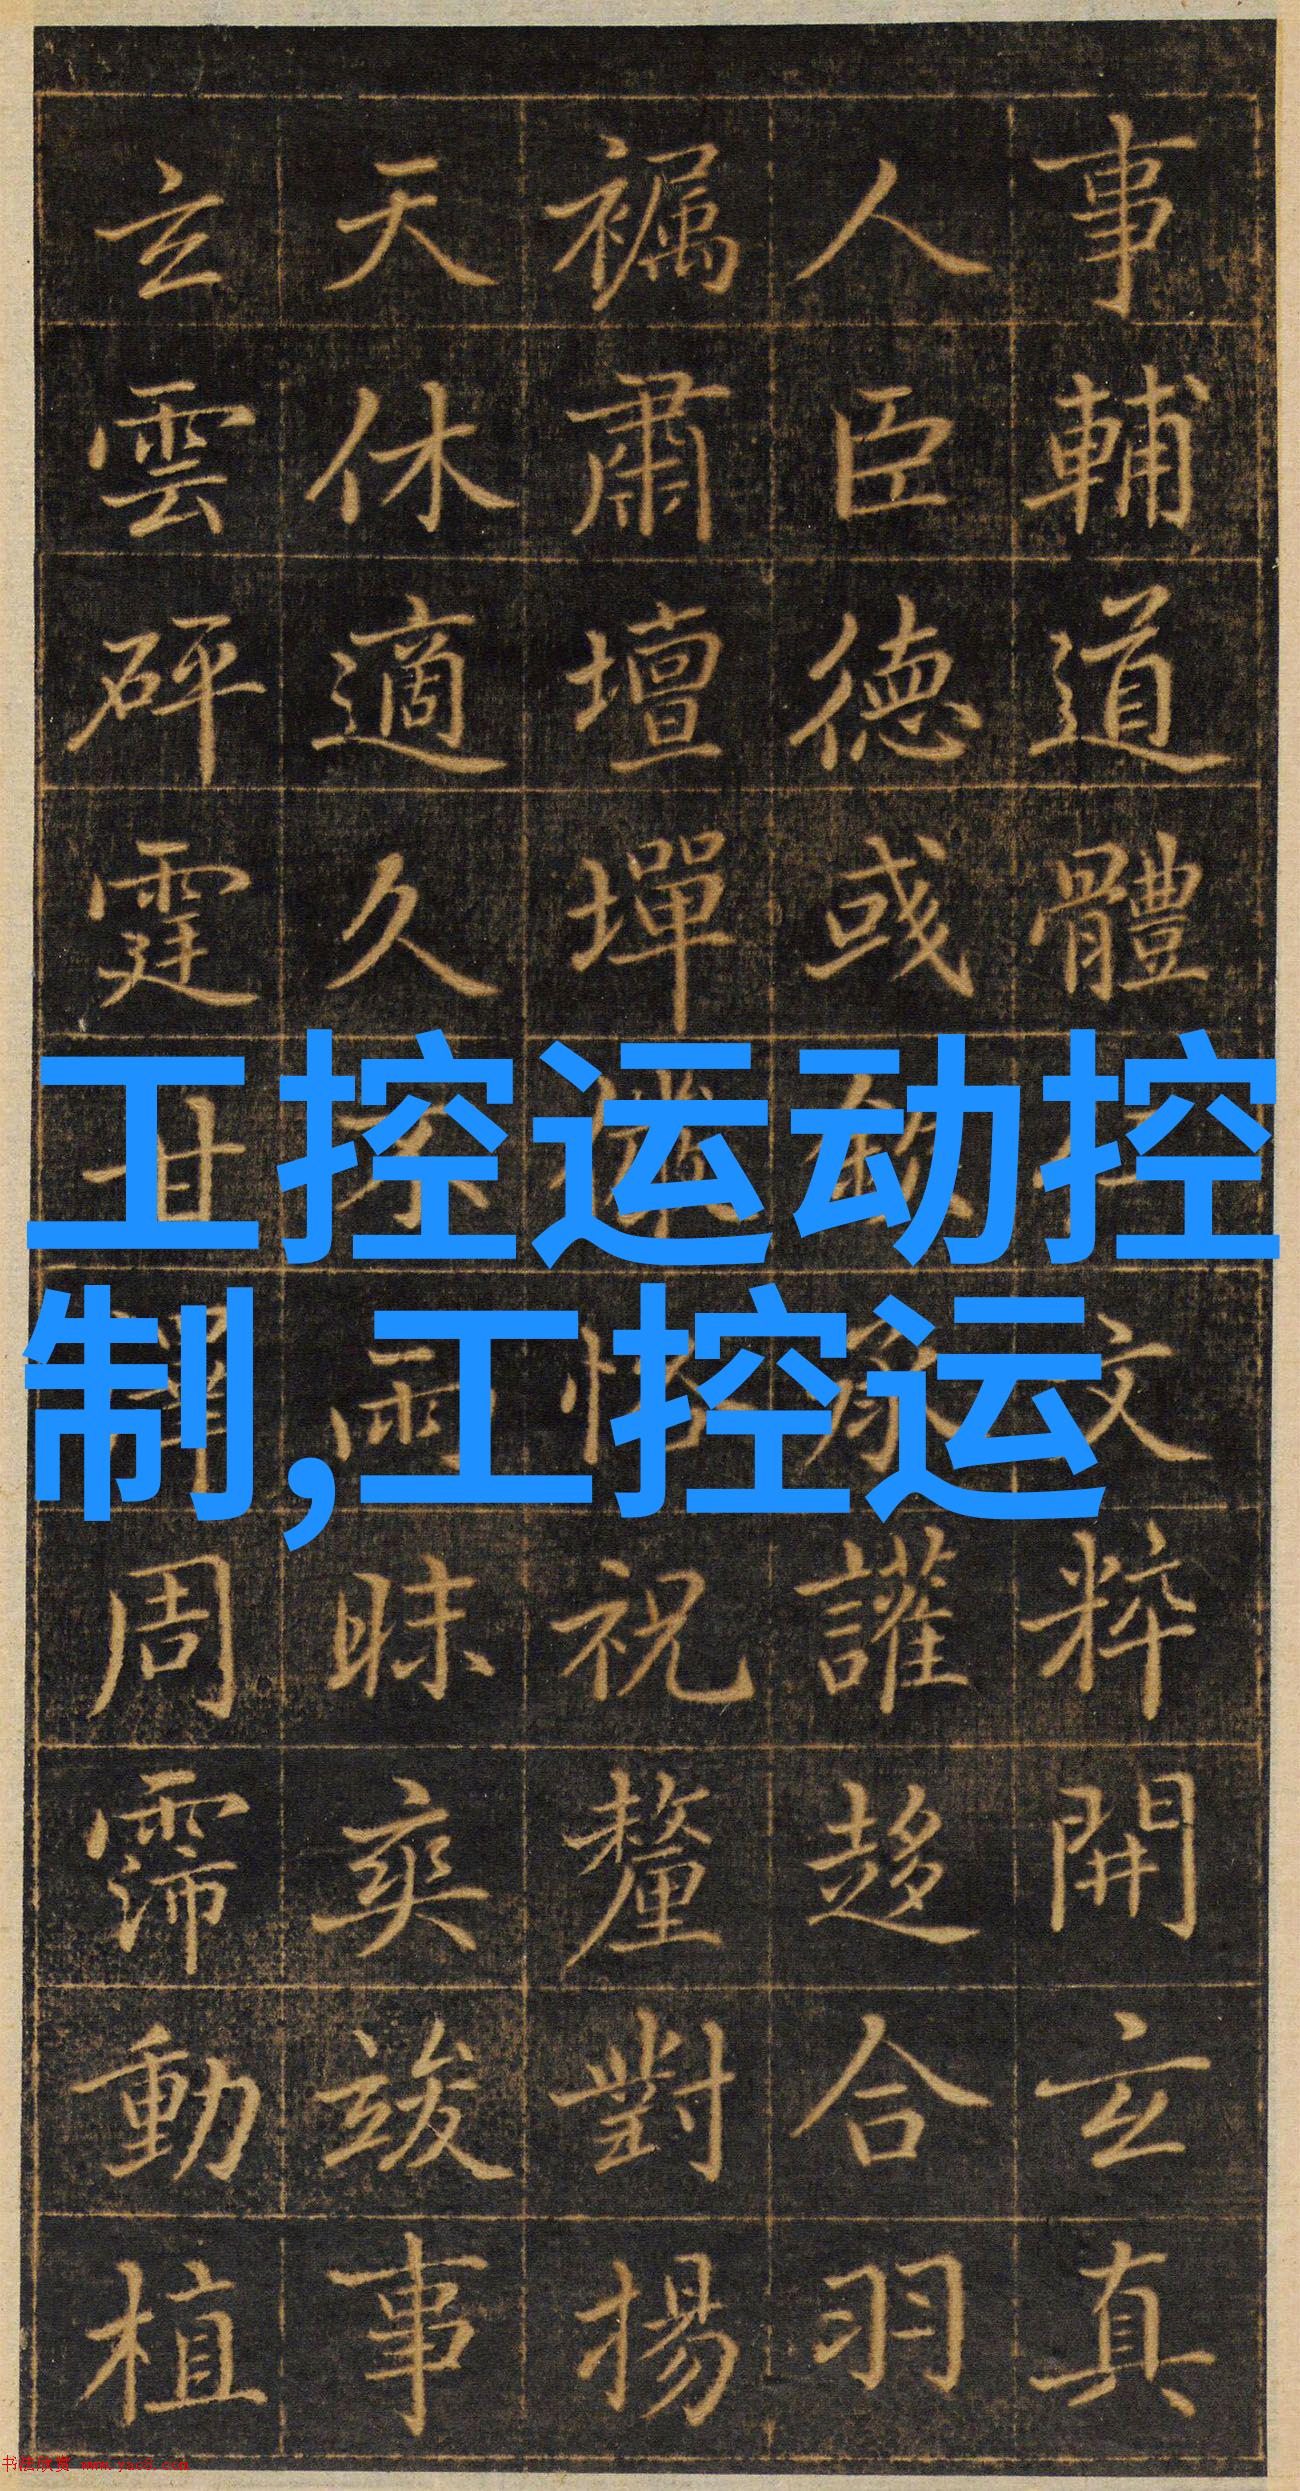 工控运动控
制,工控运
事輔道體文粹開玄真
人臣德或讙趍合羽
肅壇墠恪祝釐對揚
天休適久不雨昧爽竣事
玄雲砰霆甘澤周霈動植
书法欣赏 www.yac8.com